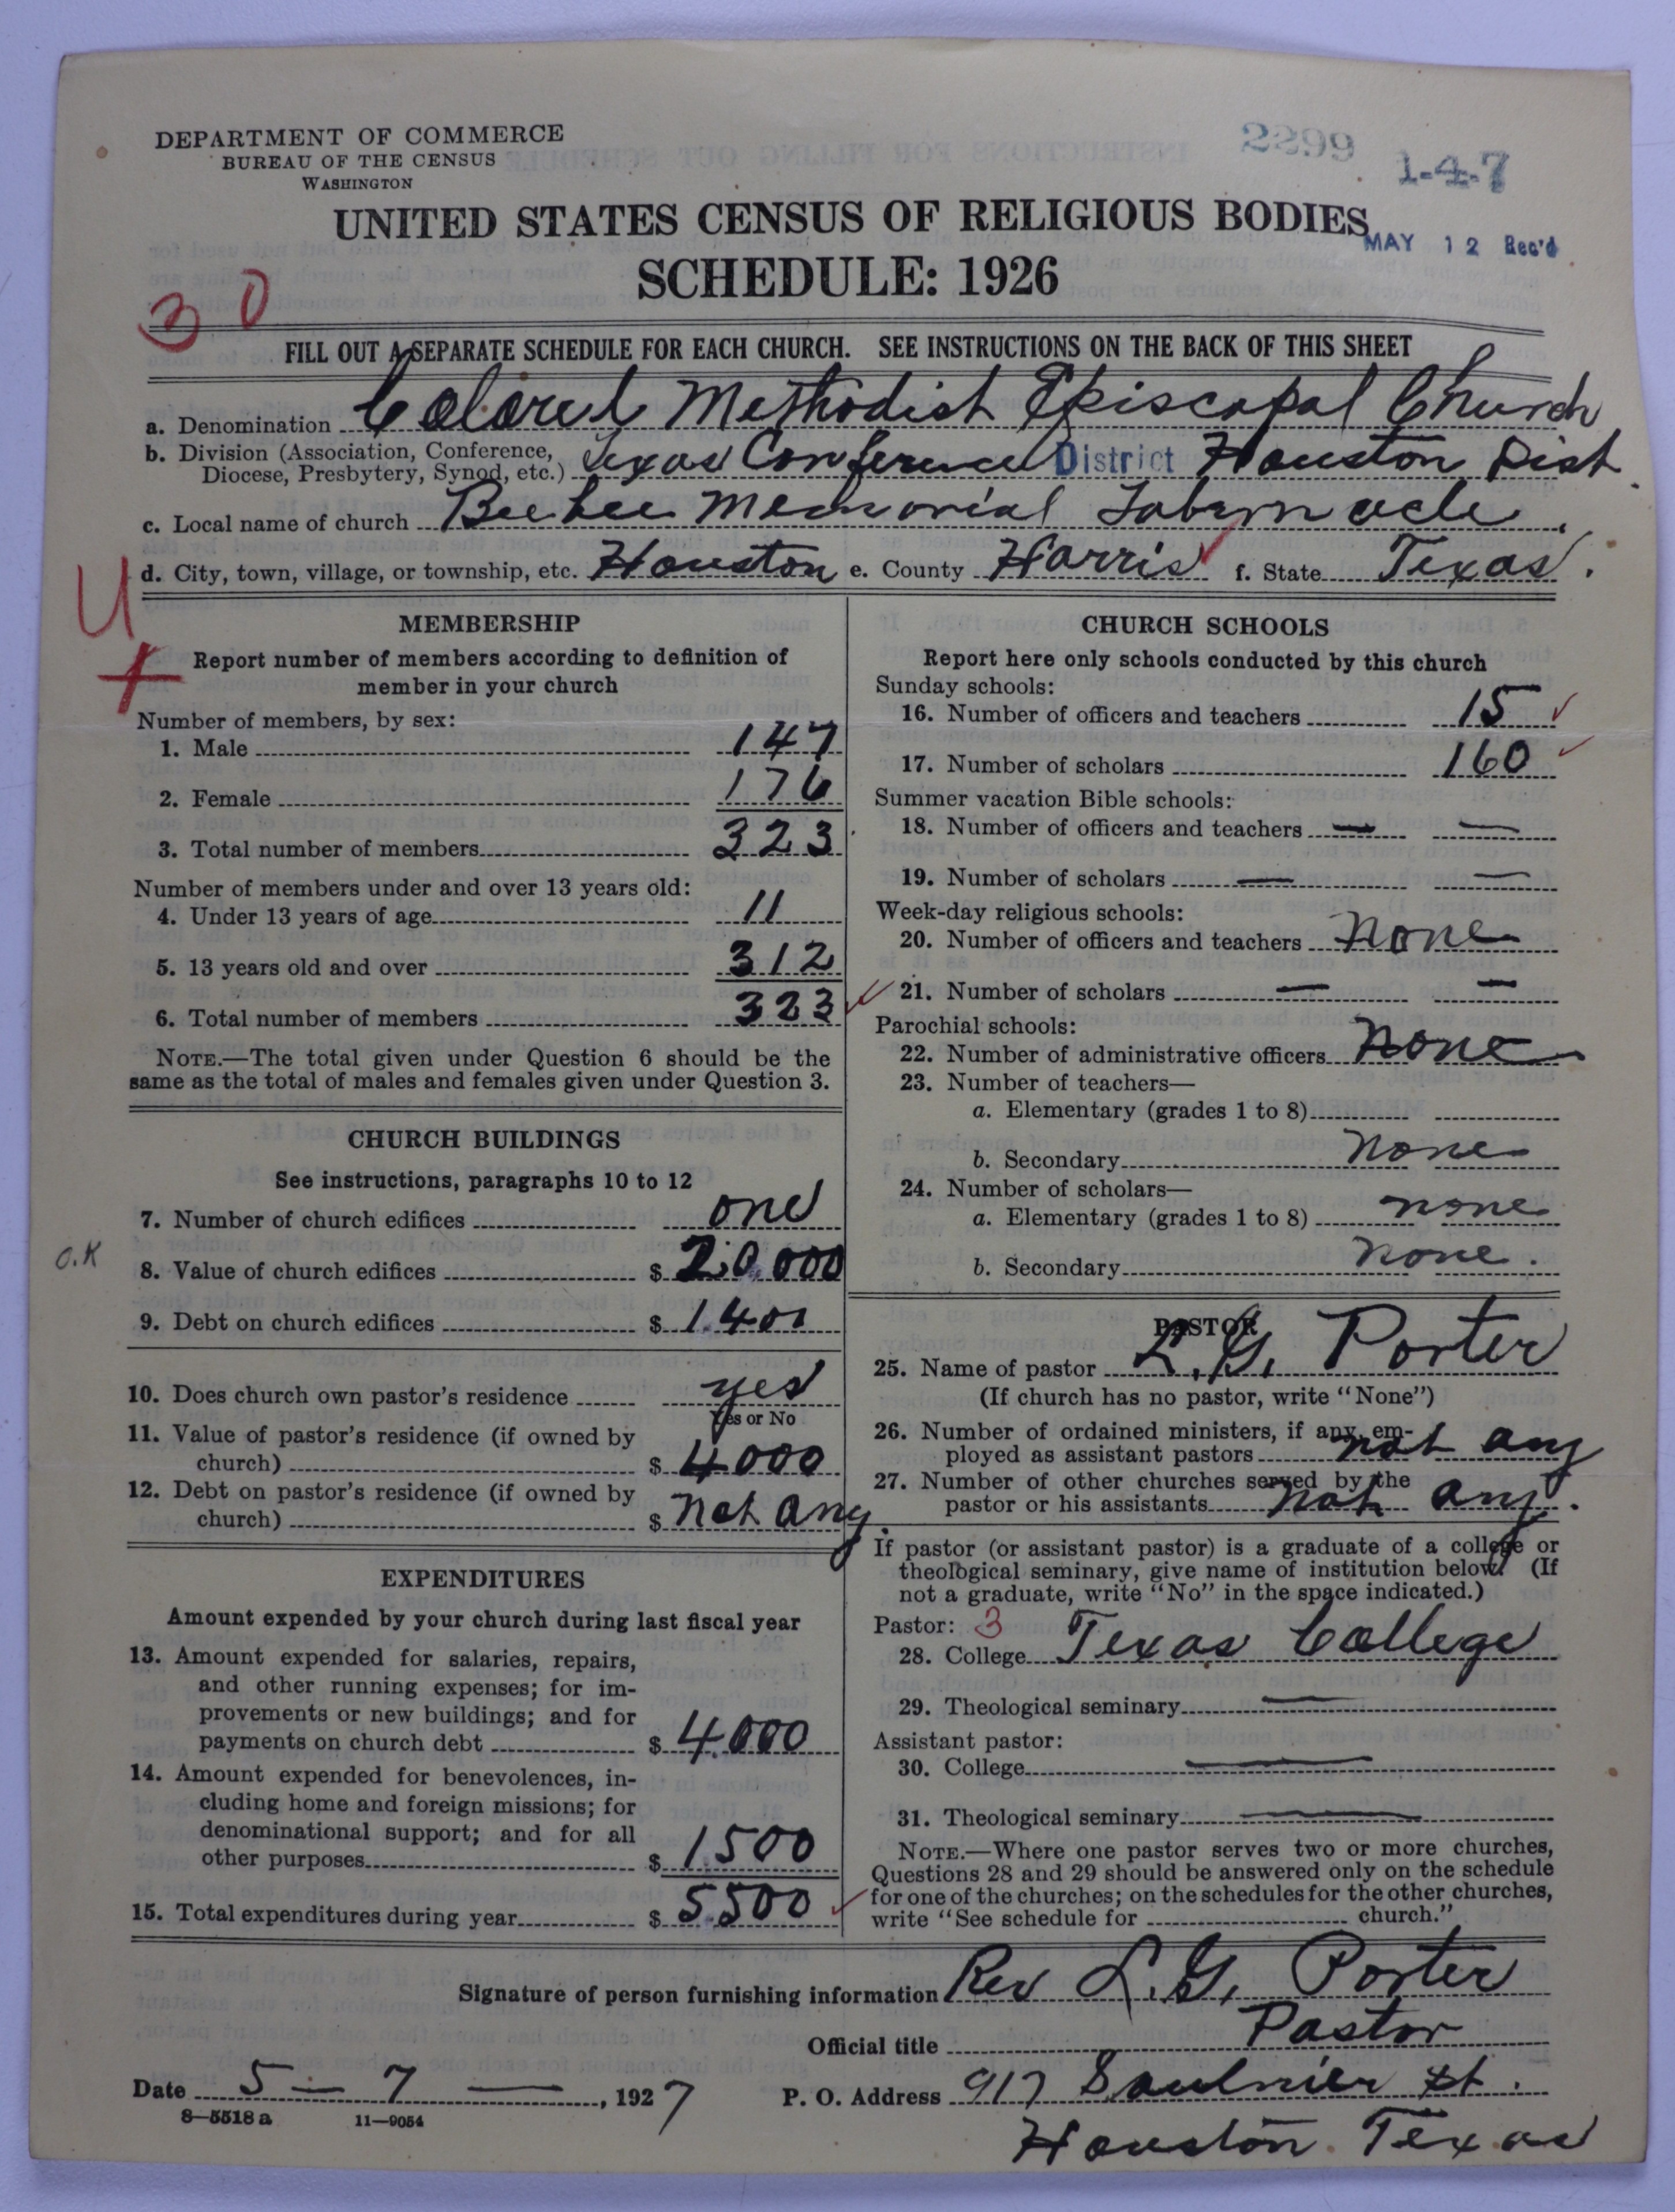 DEPARTMENT OF COMMERCE
BUREAU OF THE CENSUS
WASHINGTON
2299
1-4-7
UNITED STATES CENSUS OF RELIGIOUS BODIES
MAY 12 Rec'd
SCHEDULE: 1926
30
FILL OUT A SEPARATE SCHEDULE FOR EACH CHURCH. SEE INSTRUCTIONS ON THE BACK OF THIS SHEET
a. Denomination Colored Methodist Episcopal Church
b. Division (Association, Conference, Diocese, Presbytery, Synod, etc.) Texas Conference District Houston Dist
c. Local name of church Beebee Memorial Tabernacle
d. City, town, village, or township, etc. Houston e. County Harris f. State Texas.
U
MEMBERSHIP
Report number of members according to definition of
member in your church
Number of members, by sex:
1. Male 147
2. Female 176
3. Total number of members 323
Number of members under and over 13 years old:
4. Under 13 years of age 11
5. 13 years old and over 312
6. Total number of members 323
NOTE.—The total given under Question 6 should be the
same as the total of males and females given under Question 3.
CHURCH BUILDINGS
See instructions, paragraphs 10 to 12
7. Number of church edifices one
O.K
8. Value of church edifices $ 20,000
9. Debt on church edifices $ 1401
10. Does church own pastor's residence yes
Yes or No
11. Value of pastor's residence (if owned by
church) $ 4000
12. Debt on pastor's residence (if owned by
church) $ not any
EXPENDITURES
Amount expended by your church during last fiscal year
13. Amount expended for salaries, repairs,
and other running expenses; for im-
provements or new buildings; and for
payments on church debt $ 4.000
14. Amount expended for benevolences, in-
cluding home and foreign missions; for
denominational support; and for all
other purposes $ 1500
15. Total expenditures during year $ 5500
CHURCH SCHOOLS
Report here only schools conducted by this church
Sunday schools:
16. Number of officers and teachers 15
17. Number of scholars 160
Summer vacation Bible schools:
18. Number of officers and teachers — —
19. Number of scholars — —
Week-day religious schools:
20. Number of officers and teachers None
21. Number of scholars — —
Parochial schools:
22. Number of administrative officers None
23. Number of teachers—
a. Elementary (grades 1 to 8)
b. Secondary None
24. Number of scholars—
a. Elementary (grades 1 to 8) none
b. Secondary None.
PASTOR
25. Name of pastor L. G. Porter
(If church has no pastor, write "None")
26. Number of ordained ministers, if any, em-
ployed as assistant pastors not any
27. Number of other churches served by the
pastor or his assistants not any.
If pastor (or assistant pastor) is a graduate of a college or
theological seminary, give name of institution below. (If
not a graduate, write "No" in the space indicated.)
Pastor: 3
28. College Texas College
29. Theological seminary —
Assistant pastor:
30. College —
31. Theological seminary —
NOTE.—Where one pastor serves two or more churches,
Questions 28 and 29 should be answered only on the schedule
for one of the churches; on the schedules for the other churches,
write "See schedule for church."
Signature of person furnishing information Rev L. G. Porter
Official title Pastor
Date 5 — 7 —, 1927 P. O. Address 917 Saulnier St.
8—5518 a 11—9054
Houston Texas